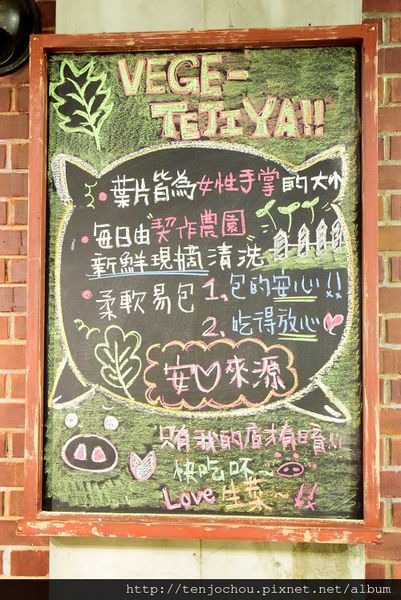 VEGE-
TEJIYA!!
·葉片皆為女性手掌的大小
·每日由"契作農園"
新鮮現摘清洗
·柔軟易包 1、包的安心!!
2、吃得放心
安心來源
只有我的店才有唷!!
快吃吓~
Love生菜~!!
http://tenjochou.pixnet.net/album